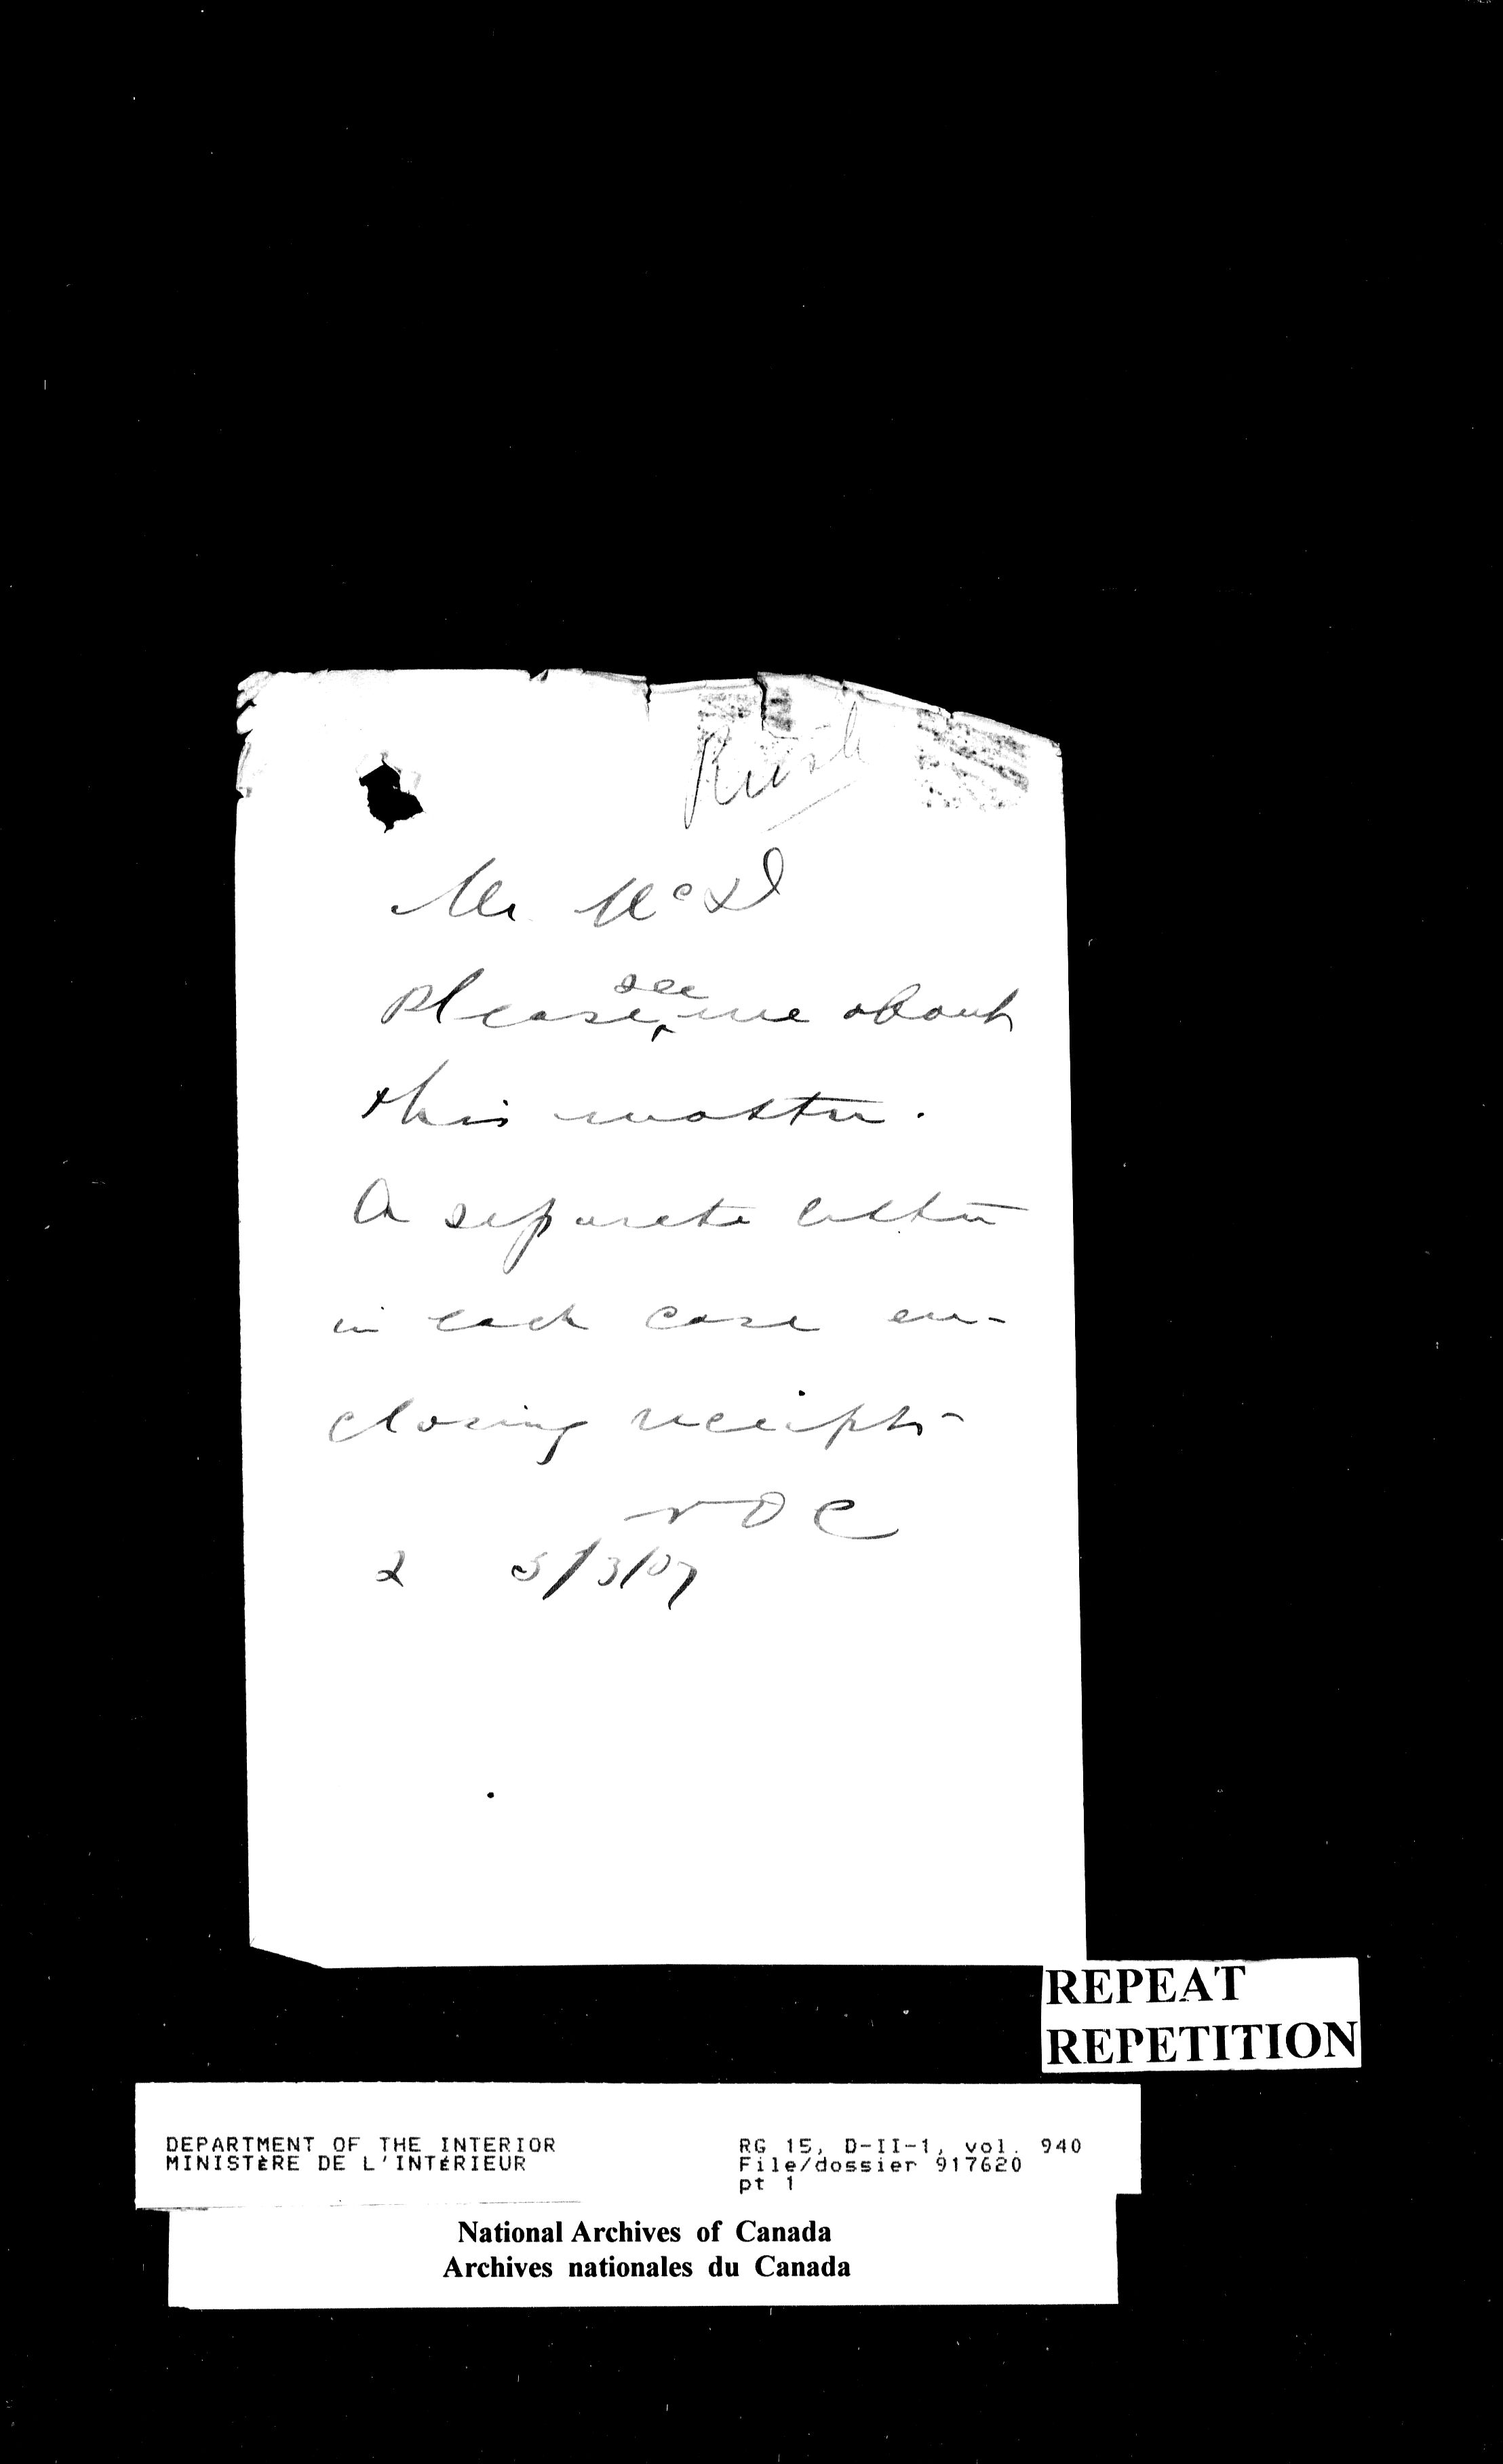 Rush
Mr. McD
Please see me about
this matter.
A separate letter
in each case en-
closing receipts-
NOC
2 5/3/07
REPEAT
REPETITION
DEPARTMENT OF THE INTERIOR RG 15, D-II-1, vol. 940
MINISTÈRE DE L'INTÉRIEUR File/dossier 917620
pt 1
National Archives of Canada
Archives nationales du Canada